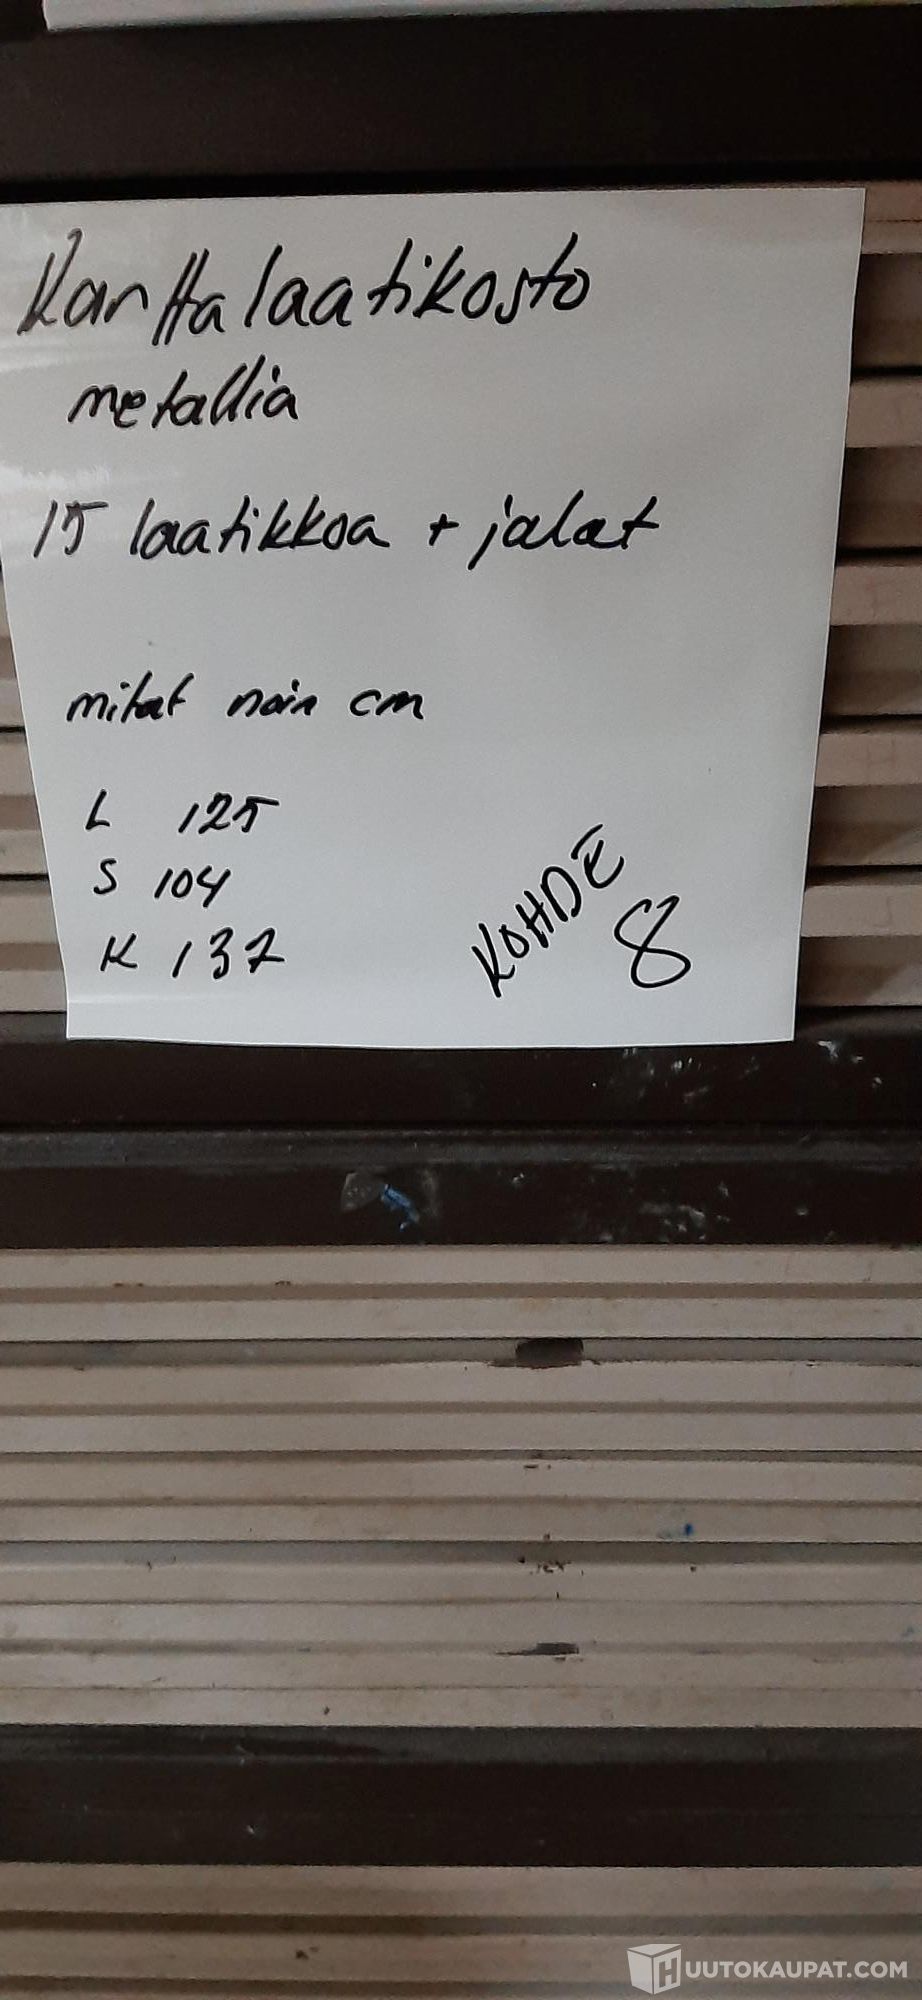 Karttalaatikosto
metallia
15 laatikkoa + jalat
mitat noin cm
L 125
S 104
K 137
KOHDE
8
HUUTOKAUPAT.COM